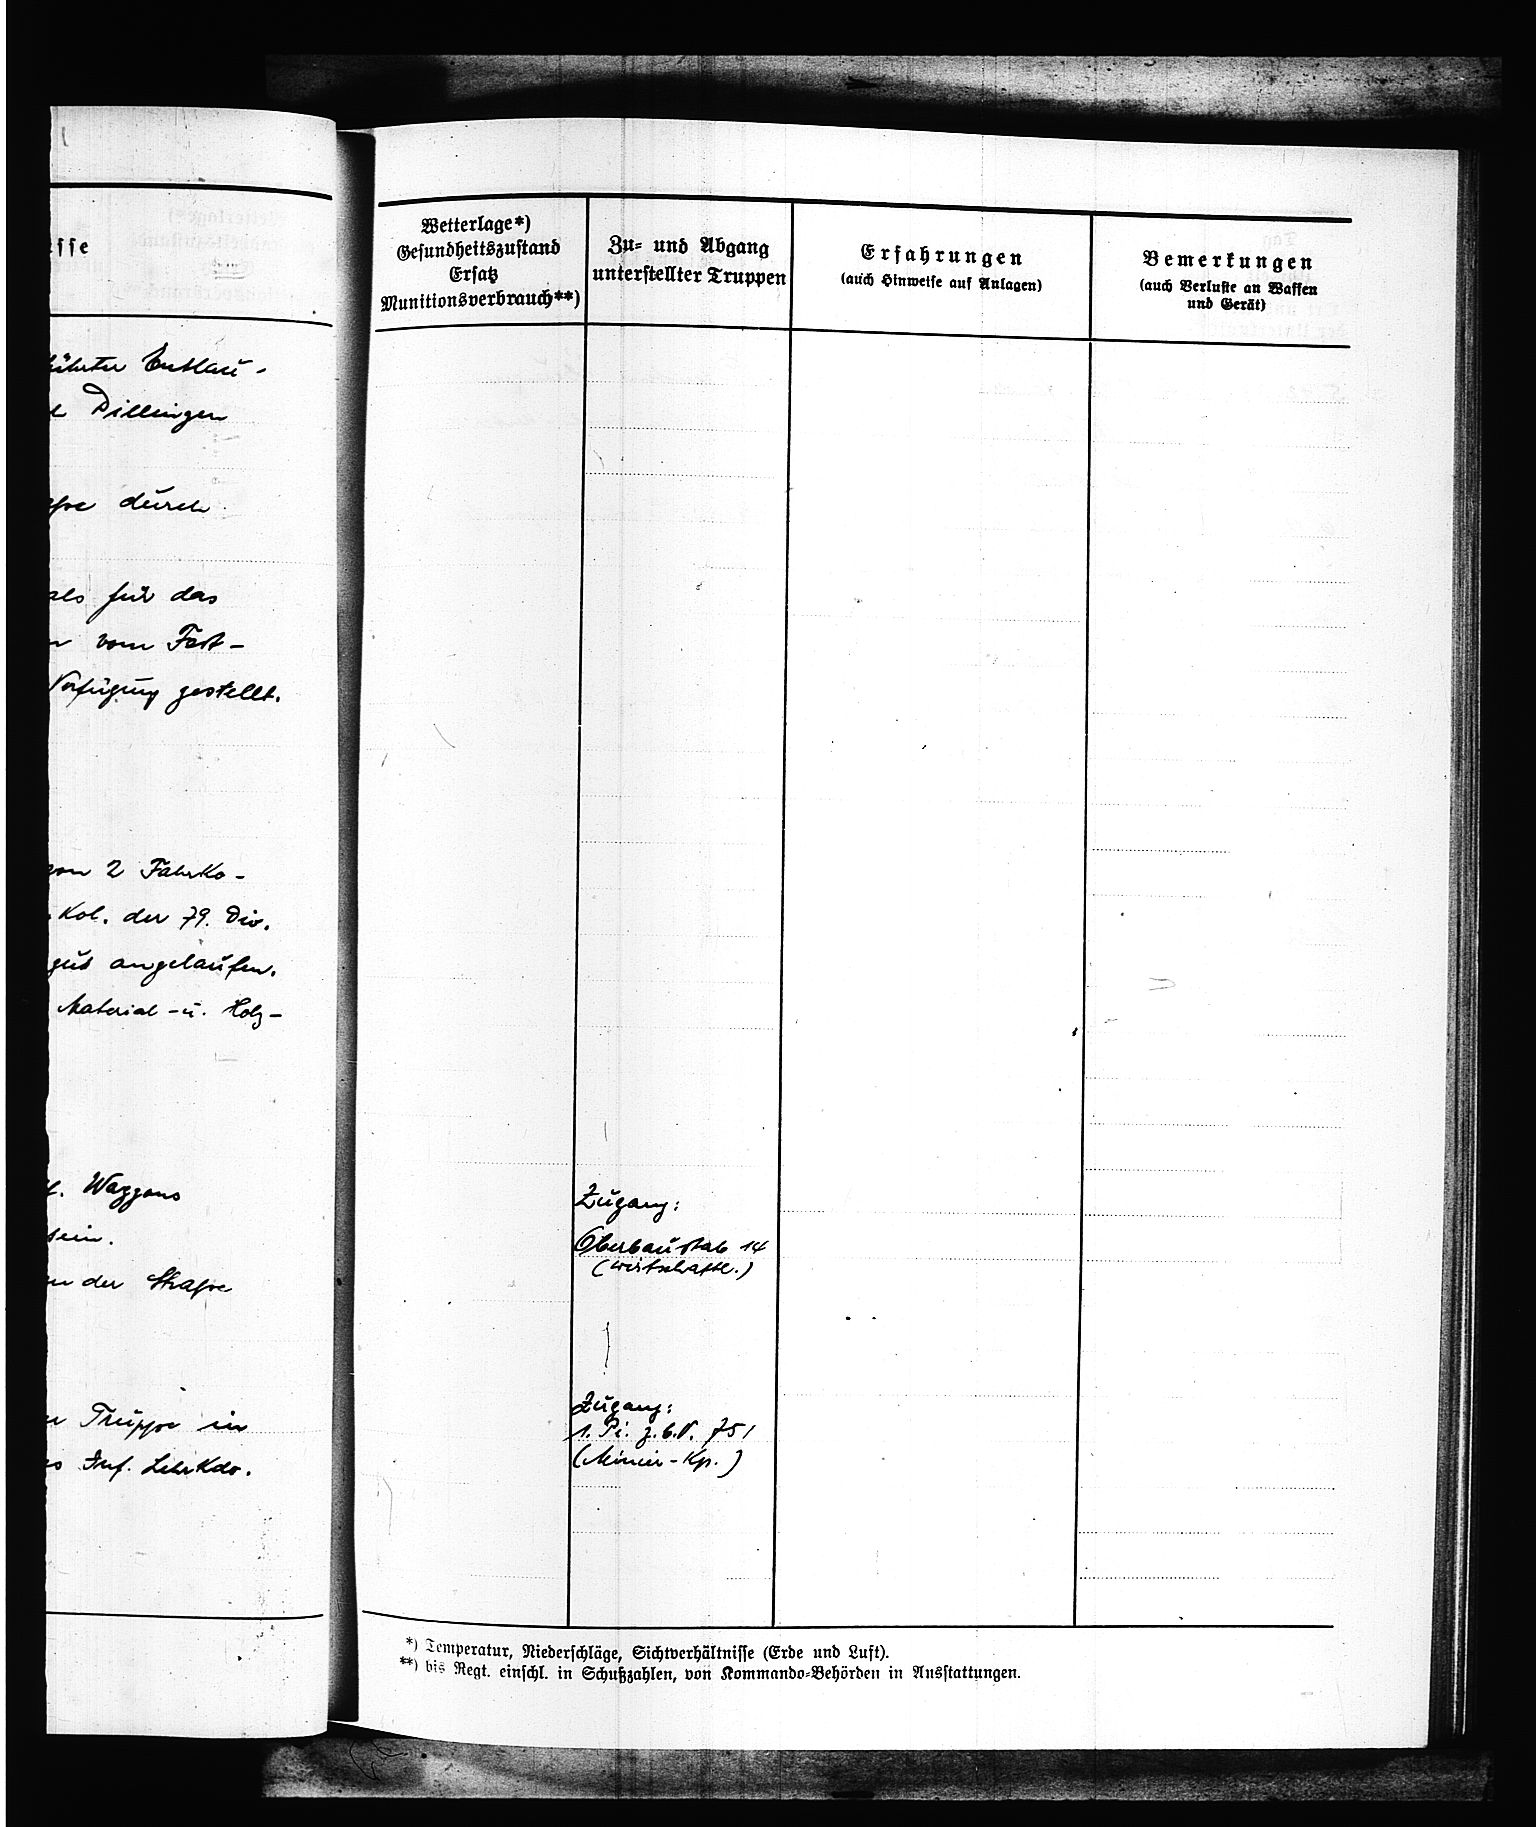 sse
führter Entlau-
Dillingen
durch
als für das
vom Fest-
Verfügung gestellt.
von 2 Fahrko-
Kol. der 79. Div.
gut angelaufen.
Material- u. Holz-
Waggons
sein.
der Straße
Truppe in
Inf. Lehrkdo.
Wetterlage*)
Gesundheitszustand
Ersatz
Munitionsverbrauch**)
Zu- und Abgang
unterstellter Truppen
Erfahrungen
(auch Hinweise auf Anlagen)
Bemerkungen
(auch Verluste an Waffen
und Gerät)
Zugang:
Oberbaustab 14
(wirtschaftl.)
Zugang:
1. Pi. z.b.V. 751
(Minier-Kp.)
*) Temperatur, Niederschläge, Sichtverhältnisse (Erde und Luft).
**) bis Regt. einschl. in Schußzahlen, von Kommando-Behörden in Ausstattungen.